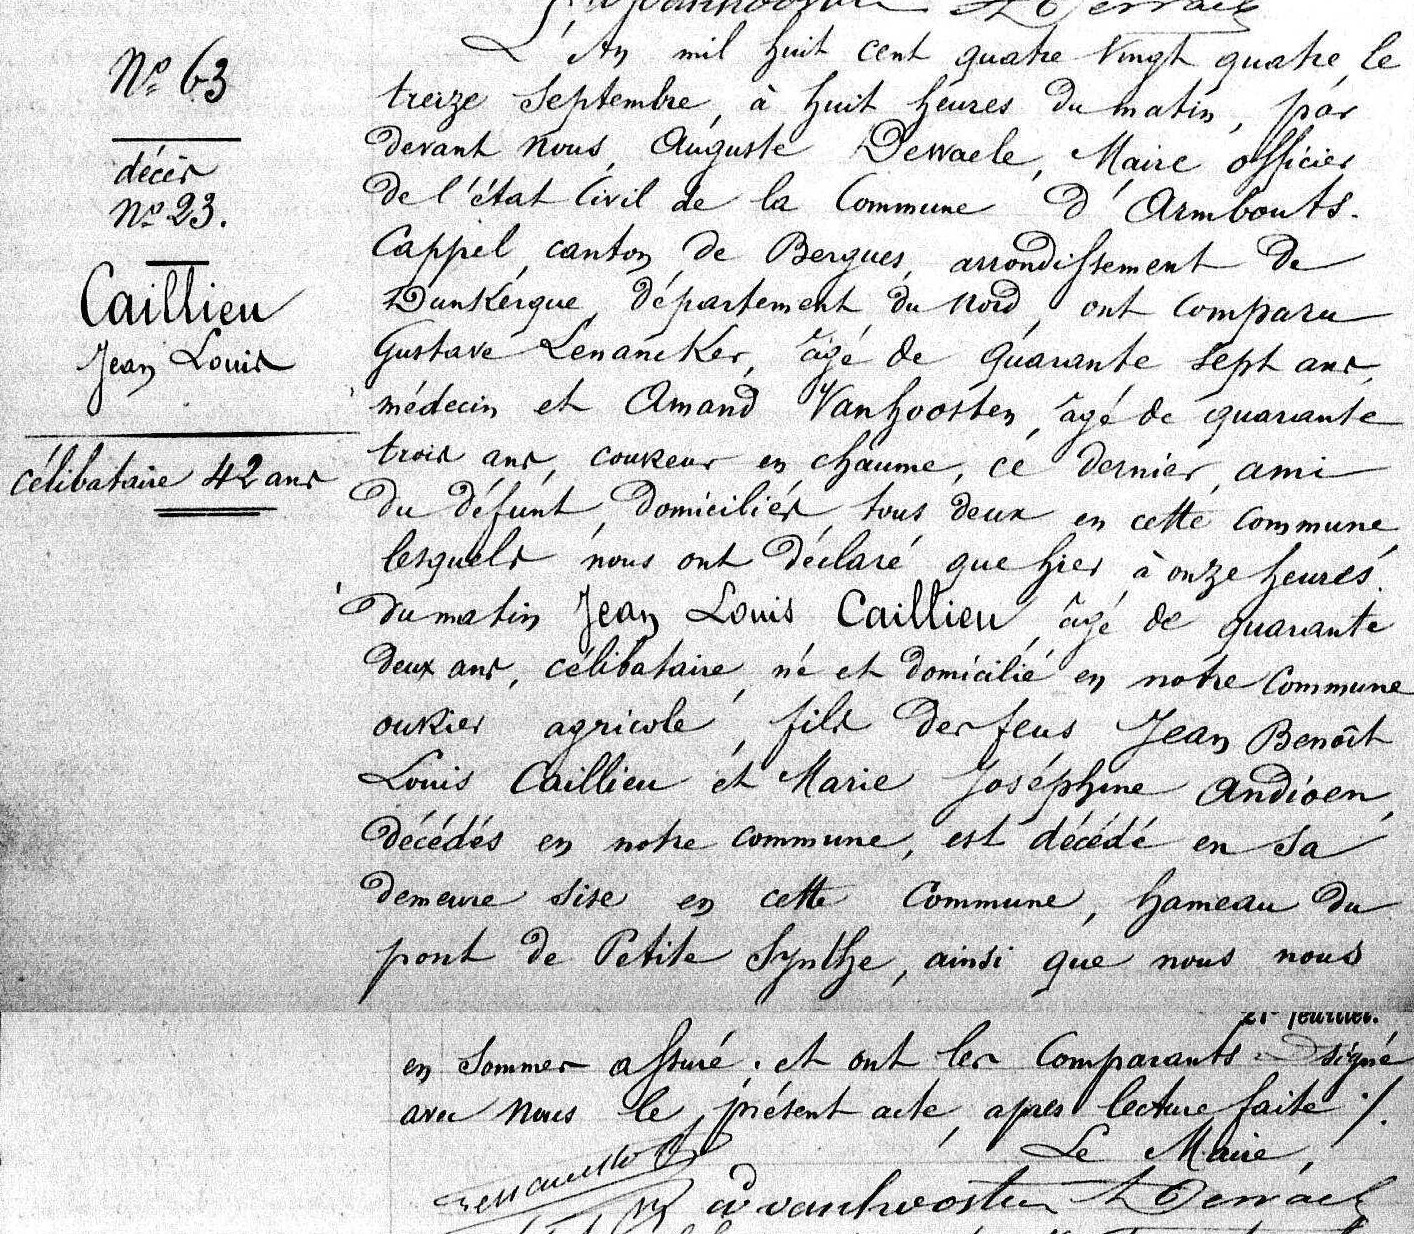 N° 63
décès
N° 23.
Caillieu
Jean Louis
célibataire 42 ans
L'An mil huit cent quatre vingt quatre, le
treize Septembre, à huit heures du matin, par
devant nous, Auguste Dewaele, Maire officier
de l'état Civil de la Commune d'Armbouts-
Cappel, canton de Bergues, arrondissement de
Dunkerque, département du Nord, ont comparu
Gustave Lenancker, âgé de quarante sept ans,
médecin et Amand Vanhoosten, âgé de quarante
trois ans, couvreur en chaume, ce dernier, ami
du défunt, domiciliés, tous deux en cette commune
lesquels nous ont déclaré que hier, à onze heures
du matin Jean Louis Caillieu, âgé de quarante
deux ans, célibataire, né et domicilié en notre Commune
ouvrier agricole, fils des feus Jean Benoît
Louis Caillieu et Marie Joséphine Andioen,
décédés en notre commune, est décédé en sa
demeure sise en cette Commune, hameau du
pont de Petite Synthe, ainsi que nous nous
21 février.
en sommes assuré. et ont les Comparants signé
avec Nous le présent acte, après lecture faite ./.
Le Maire,
vanhoosten A Dewaele